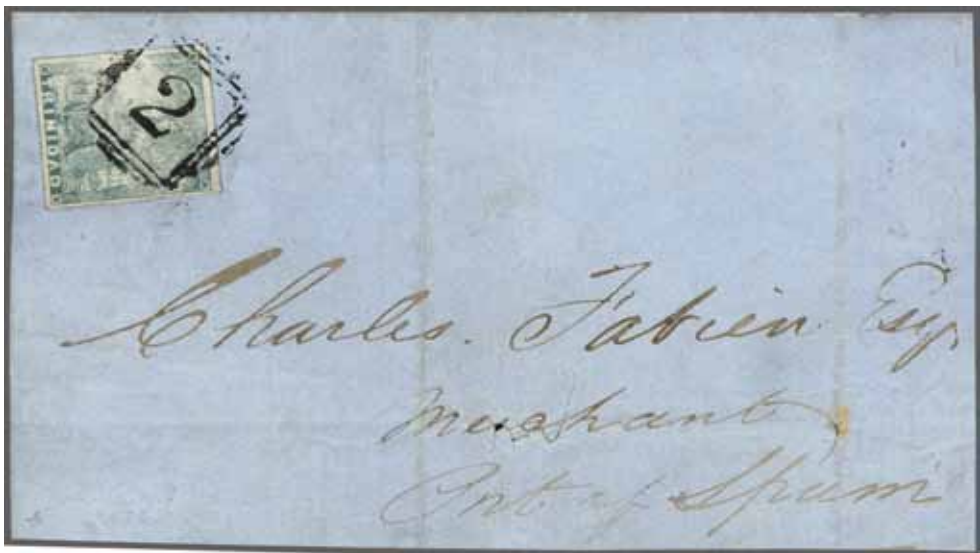 TRINIDAD
2
Charles. Fabien Esq.
Merchant
Port of Spain